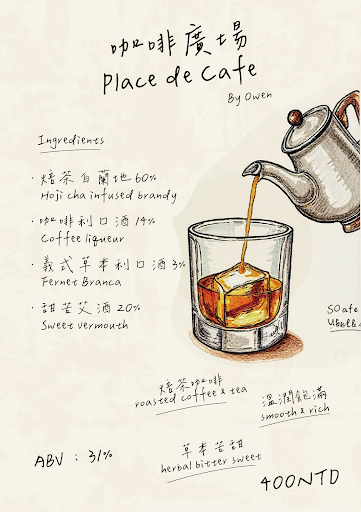 咖啡廣場
Place de Cafe
By Owen
Ingredients
· 焙茶白蘭地 60%
Hojicha infused brandy
· 咖啡利口酒 14%
Coffee liqueur
· 義式草本利口酒 3%
Fernet Branca
· 甜苦艾酒 20%
Sweet vermouth
焙茶咖啡
roasted coffee & tea
溫潤飽滿
smooth & rich
草本苦甜
herbal bitter sweet
ABV : 31%
400NTD